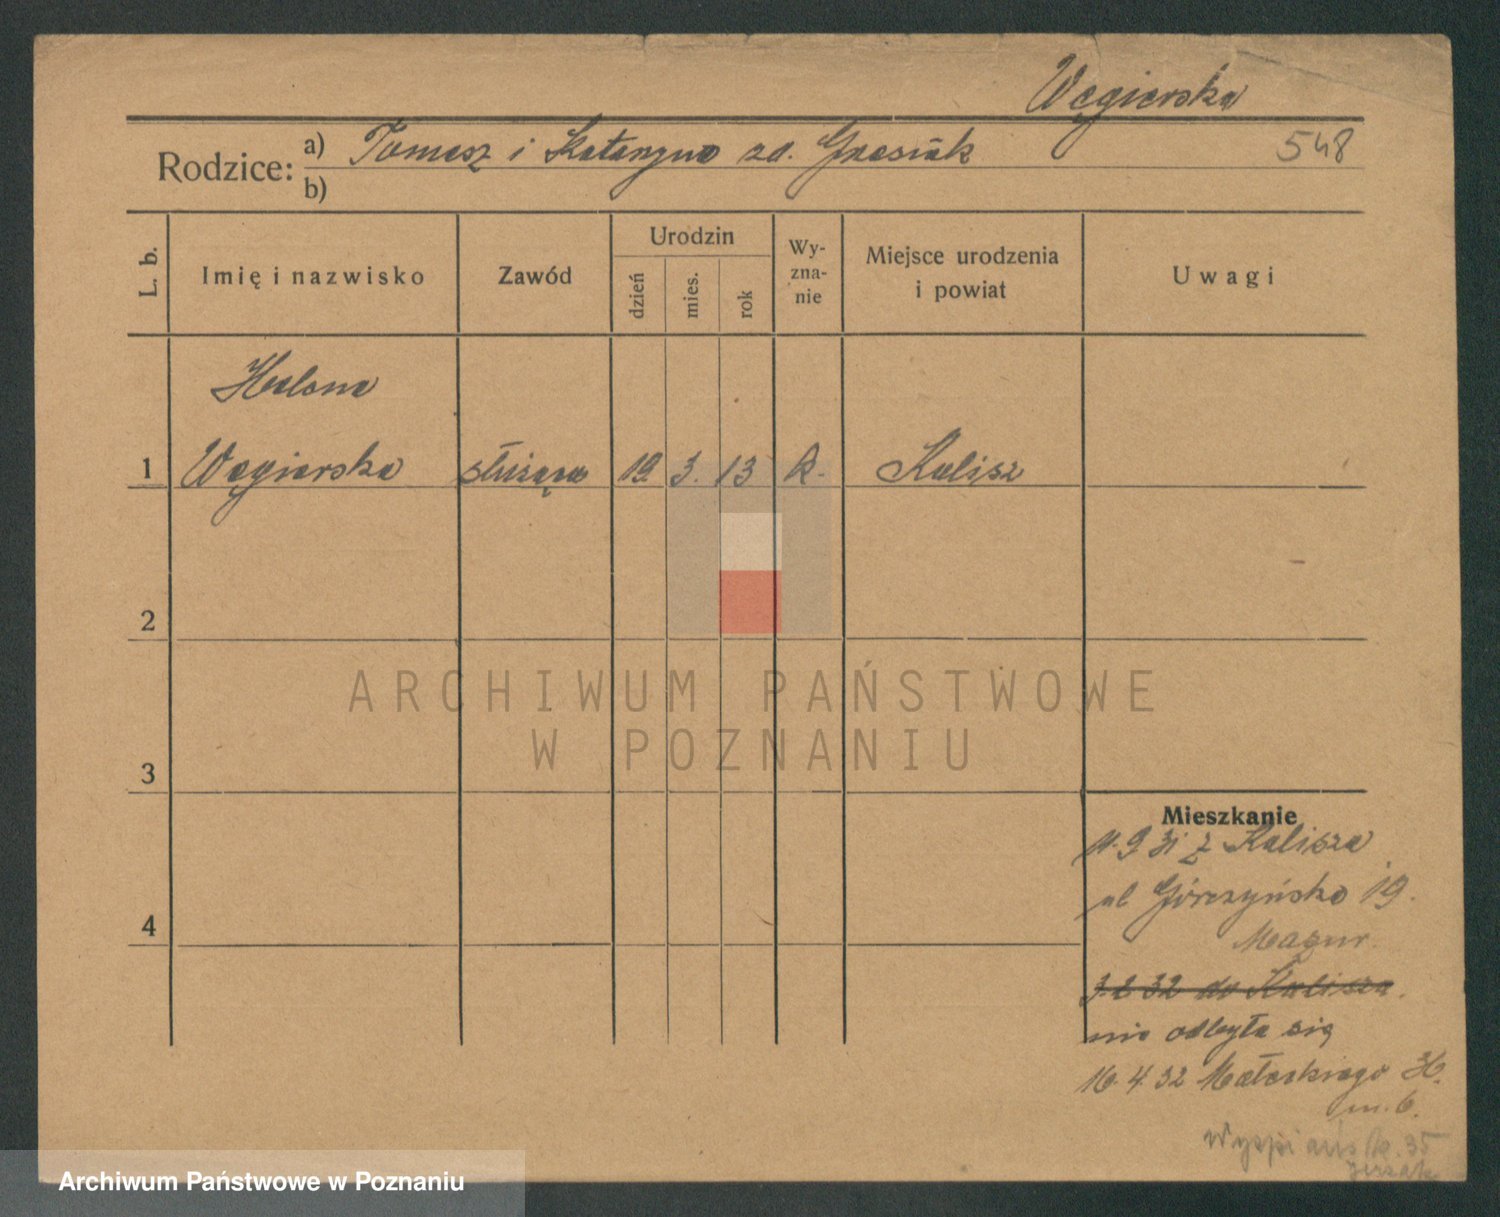 Węgierska
Rodzice: a) Tomasz i Katarzyna zd. Grzesiak 548
b)
L. b. Imię i nazwisko Zawód Urodzin dzień mies. rok Wy-zna-nie Miejsce urodzenia i powiat Uwagi
Helena
1 Węgierska służąca 19. 3. 13 k. Kalisz
2
ARCHIWUM PAŃSTWOWE
W POZNANIU
3
Mieszkanie
11.9.31 z Kalisza
ul Górczyńska 19.
4
Mazur.
3.2.32 do Kalisza.
nie odbyła się
16.4.32 Małeckiego 36.
m. 6.
Wyspiańsk. 35
Archiwum Państwowe w Poznaniu